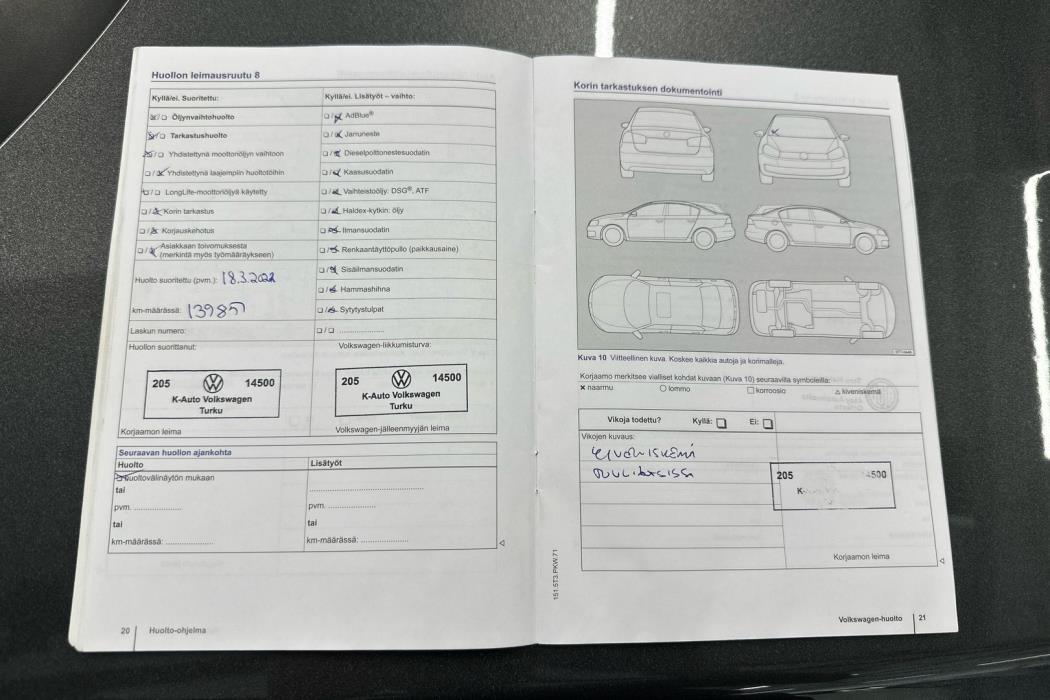 Huollon leimausruutu 8
Kyllä/ei. Suoritettu:
Öljynvaihtohuolto
Tarkastushuolto
Yhdistettynä moottoriöljyn vaihtoon
Yhdistettynä laajempiin huoltotöihin
LongLife-moottoriöljyä käytetty
Korin tarkastus
Korjauskehotus
Asiakkaan toivomuksesta
(merkintä myös työmääräykseen)
Huolto suoritettu (pvm.): 18.3.2022
km-määrässä: 139857
Laskun numero:
Kyllä/ei. Lisätyöt – vaihto:
AdBlue®
Jarruneste
Dieselpolttonestesuodatin
Kaasusuodatin
Vaihteistoöljy: DSG®, ATF
Haldex-kytkin: öljy
Ilmansuodatin
Renkaantäyttöpullo (paikkausaine)
Sisäilmansuodatin
Hammashihna
Sytytystulpat
Huollon suorittanut:
205 14500
K-Auto Volkswagen
Turku
Korjaamon leima
Volkswagen-liikkumisturva:
205 14500
K-Auto Volkswagen
Turku
Volkswagen-jälleenmyyjän leima
Seuraavan huollon ajankohta
Huolto
Huoltovälinäytön mukaan
tai
pvm. ....................
tai
km-määrässä: ....................
Lisätyöt
pvm. ....................
tai
km-määrässä: ....................
20 Huolto-ohjelma
Korin tarkastuksen dokumentointi
Kuva 10 Viitteellinen kuva. Koskee kaikkia autoja ja korimalleja.
Korjaamo merkitsee vialliset kohdat kuvaan (Kuva 10) seuraavilla symboleilla:
naarmu lommo korroosio kiveniskemä
Vikoja todettu? Kyllä: Ei:
Vikojen kuvaus:
tuulilasissa
205 14500
K-
Korjaamon leima
151.5T3.PKW.71
Volkswagen-huolto 21